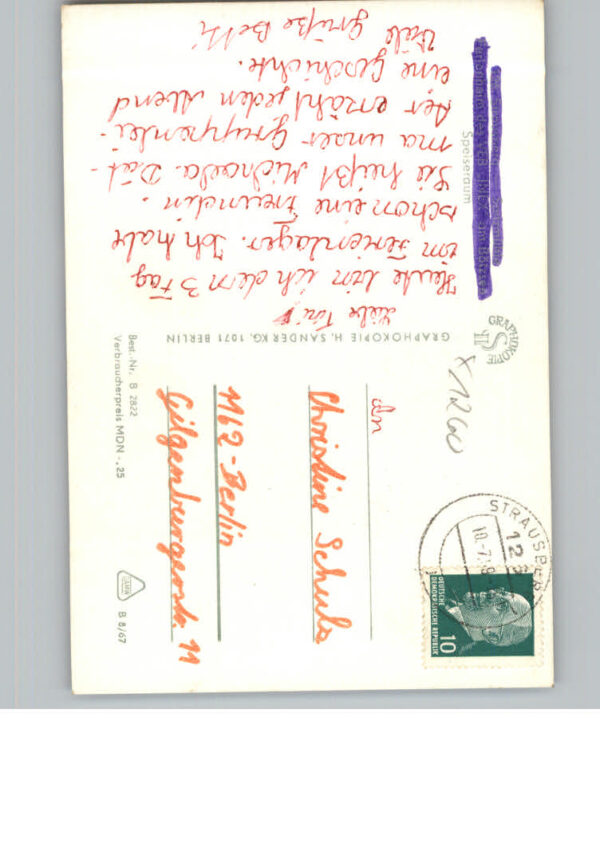 Speiseraum
Liebe
Heute bin ich den 3 Tag
im Ferienlager. Ich habe
schon eine Freundin.
Sie heißt Michaela. Dat-
ma unser Gruppenlei-
ter erzählt jeden Abend
eine Geschichte.
Viele Grüße Betti
GRAPHOKOPIE
H S
GRAPHOKOPIE H. SANDER KG, 1071 BERLIN
Best.-Nr. B 2822
Verbraucherpreis MDN -,25
B 8/67
An
Christine Schulz
1162-Berlin
Gilgenburgerstr. 11
x1260
STRAUSBER
DEUTSCHE
DEMOKRATISCHE REPUBLIK
10